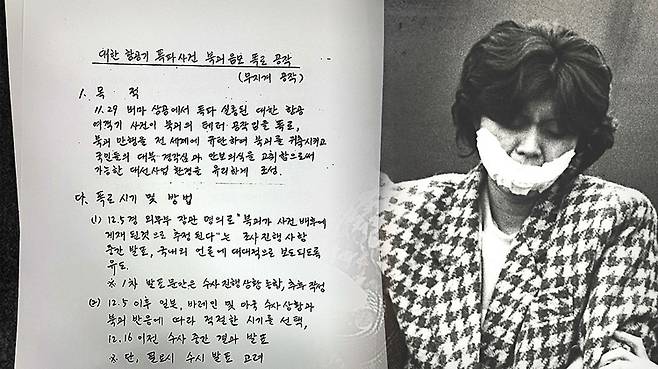 대한 항공기 폭파사건 북괴 음모 폭로 공작
(무지개 공작)
1. 목 적
11.29 버마 상공에서 폭파 실종된 대한 항공
여객기 사건이 북괴의 테러 공작임을 폭로,
북괴 만행을 전 세계에 규탄하여 북괴를 위축시키고
국민들의 대북 경각심과 안보의식을 고취함으로써
가능한 대선사업 환경을 유리하게 조성.
다. 폭로시기 및 방법
(1) 12.5경 외무부 장관 명의로 "북괴가 사건 배후에
게재된것으로 추정된다"는 조사진행 사항
중간 발표, 국내외 언론에 대대적으로 보도되도록
유도.
※ 1차 발표문안은 수사진행 상황 종합, 추후 작성
(2) 12.5 이후 일본, 바레인 및 마중 수사상황과
북괴 반응에 따라 적절한 시기를 선택,
12.16 이전 수사 중간 결과 발표
※ 단, 필요시 수시 발표 고려